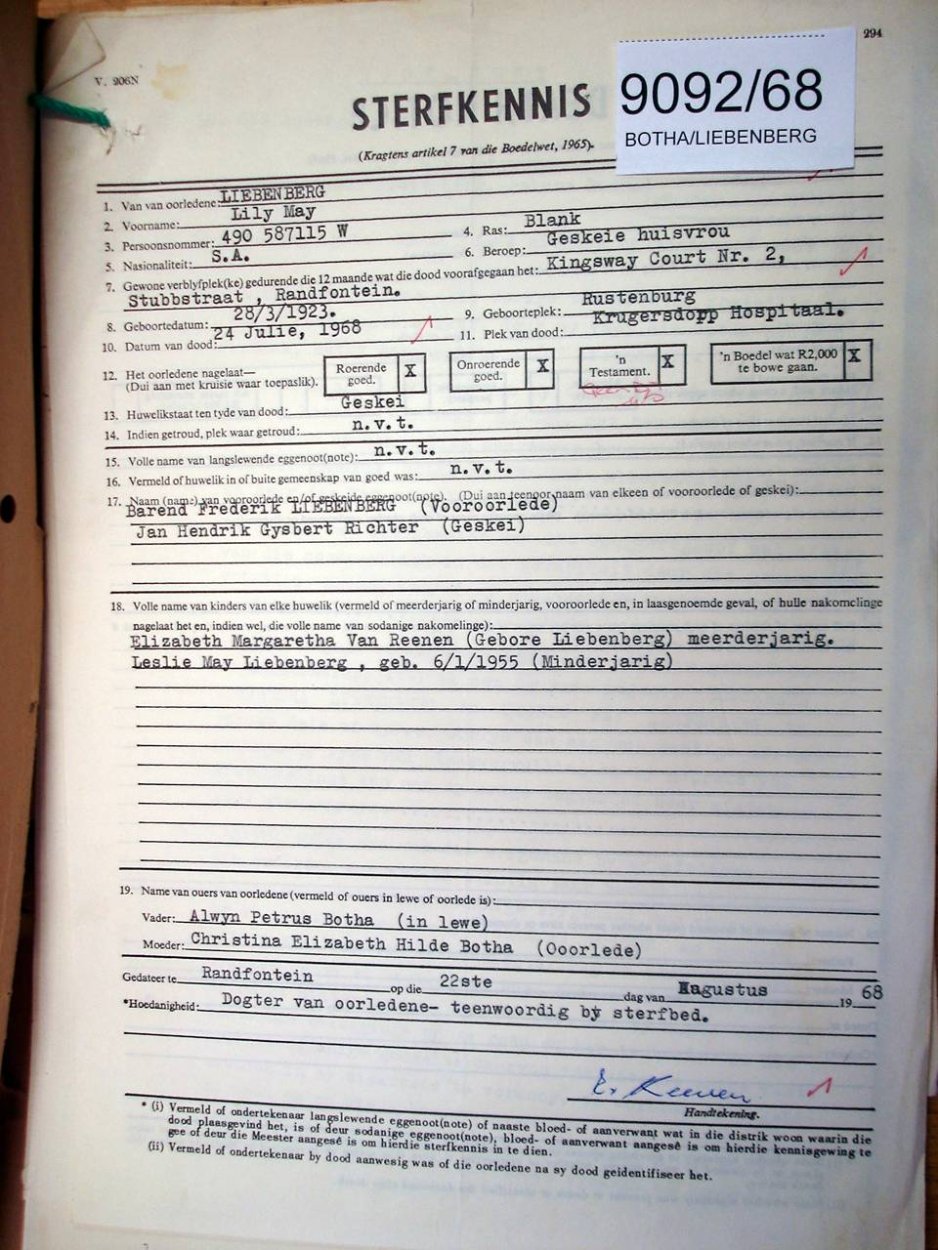 294
V. 206N
STERFKENNIS
9092/68
BOTHA/LIEBENBERG
(Kragtens artikel 7 van die Boedelwet, 1965).
1. Van van oorledene: LIEBENBERG
2. Voorname: Lily May
3. Persoonsnommer: 490 587115 W 4. Ras: Blank
5. Nasionaliteit: S.A. 6. Beroep: Geskeie huisvrou
7. Gewone verblyfplek(ke) gedurende die 12 maande wat die dood voorafgegaan het: Kingsway Court Nr. 2,
Stubbstraat , Randfontein.
8. Geboortedatum: 28/3/1923. 9. Geboorteplek: Rustenburg
10. Datum van dood: 24 Julie, 1968 11. Plek van dood: Krugersdopp Hospitaal.
12. Het oorledene nagelaat— (Dui aan met kruisie waar toepaslik). Roerende goed. X Onroerende goed. X 'n Testament. X 'n Boedel wat R2,000 te bowe gaan. X
13. Huwelikstaat ten tyde van dood: Geskei
14. Indien getroud, plek waar getroud: n.v.t.
15. Volle name van langslewende eggenoot(note): n.v.t.
16. Vermeld of huwelik in of buite gemeenskap van goed was: n.v.t.
17. Naam (name) van vooroorlede en/of geskeide eggenoot(note). (Dui aan teenoor naam van elkeen of vooroorlede of geskei):
Barend Frederik LIEBENBERG (Vooroorlede)
Jan Hendrik Gysbert Richter (Geskei)
18. Volle name van kinders van elke huwelik (vermeld of meerderjarig of minderjarig, vooroorlede en, in laasgenoemde geval, of hulle nakomelinge
nagelaat het en, indien wel, die volle name van sodanige nakomelinge):
Elizabeth Margaretha Van Reenen (Gebore Liebenberg) meerderjarig.
Leslie May Liebenberg , geb. 6/1/1955 (Minderjarig)
19. Name van ouers van oorledene (vermeld of ouers in lewe of oorlede is):
Vader: Alwyn Petrus Botha (in lewe)
Moeder: Christina Elizabeth Hilde Botha (Ooorlede)
Gedateer te Randfontein op die 22ste dag van Augustus 19 68
*Hoedanigheid: Dogter van oorledene- teenwoordig by sterfbed.
Handtekening.
* (i) Vermeld of ondertekenaar langslewende eggenoot(note) of naaste bloed- of aanverwant wat in die distrik woon waarin die
dood plaasgevind het, is of deur sodanige eggenoot(note), bloed- of aanverwant aangesê is om hierdie kennisgewing te
gee of deur die Meester aangesê is om hierdie sterfkennis in te dien.
(ii) Vermeld of ondertekenaar by dood aanwesig was of die oorledene na sy dood geidentifiseer het.